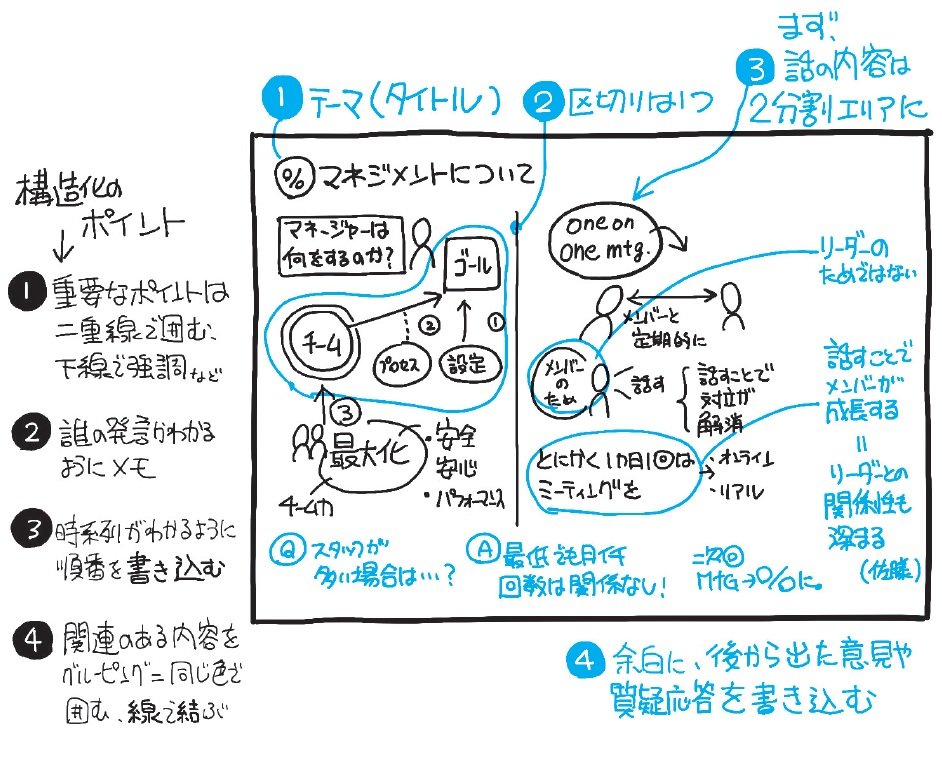 まず、
❸ 話の内容は
2分割エリアに
❶ テーマ(タイトル)
❷ 区切りは1つ
構造化の
ポイント
❶ 重要なポイントは
二重線で囲む、
下線で強調など
❷ 誰の発言かわかる
ようにメモ
❸ 時系列がわかるように
順番を書き込む
❹ 関連のある内容を
グルーピング=同じ色で
囲む、線で結ぶ
% マネジメントについて
マネージャーは
何をするのか?
ゴール
チーム
②
①
プロセス
設定
③
最大化
チーム力
・安全
安心
・パフォーマンス
one on
one mtg.
メンバーと
定期的に
メンバー
のため
話す
話すことで
対立が
解消
とにかく1カ月1回は
ミーティングを
・オンライン
・リアル
リーダーの
ためではない
話すことで
メンバーが
成長する
=
リーダーとの
関係性も
深まる
(佐藤)
Ⓠ スタッフが
多い場合は…?
Ⓐ 最低
回数は関係なし!
二次回
MtG→%に。
❹ 余白に、後から出た意見や
質疑応答を書き込む